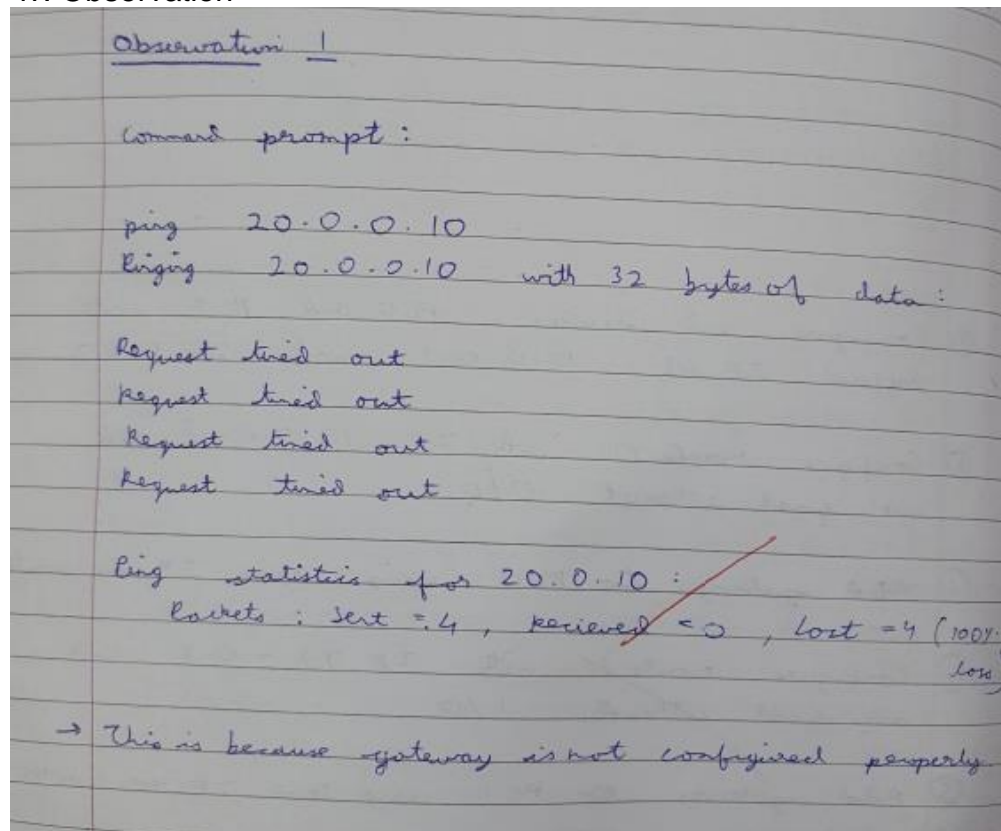 Observation 1
Command prompt :
ping 20.0.0.10
Pinging 20.0.0.10 with 32 bytes of data :
Request timed out
Request timed out
Request timed out
Request timed out
Ping statistics for 20.0.10 :
Packets : Sent = 4, recieved = 0, Lost = 4 (100%
loss)
→ This is because gateway is not configured properly